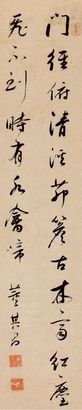 門徑俯清溪茅簷古木齊紅塵
飛不到時有水禽啼
董其昌